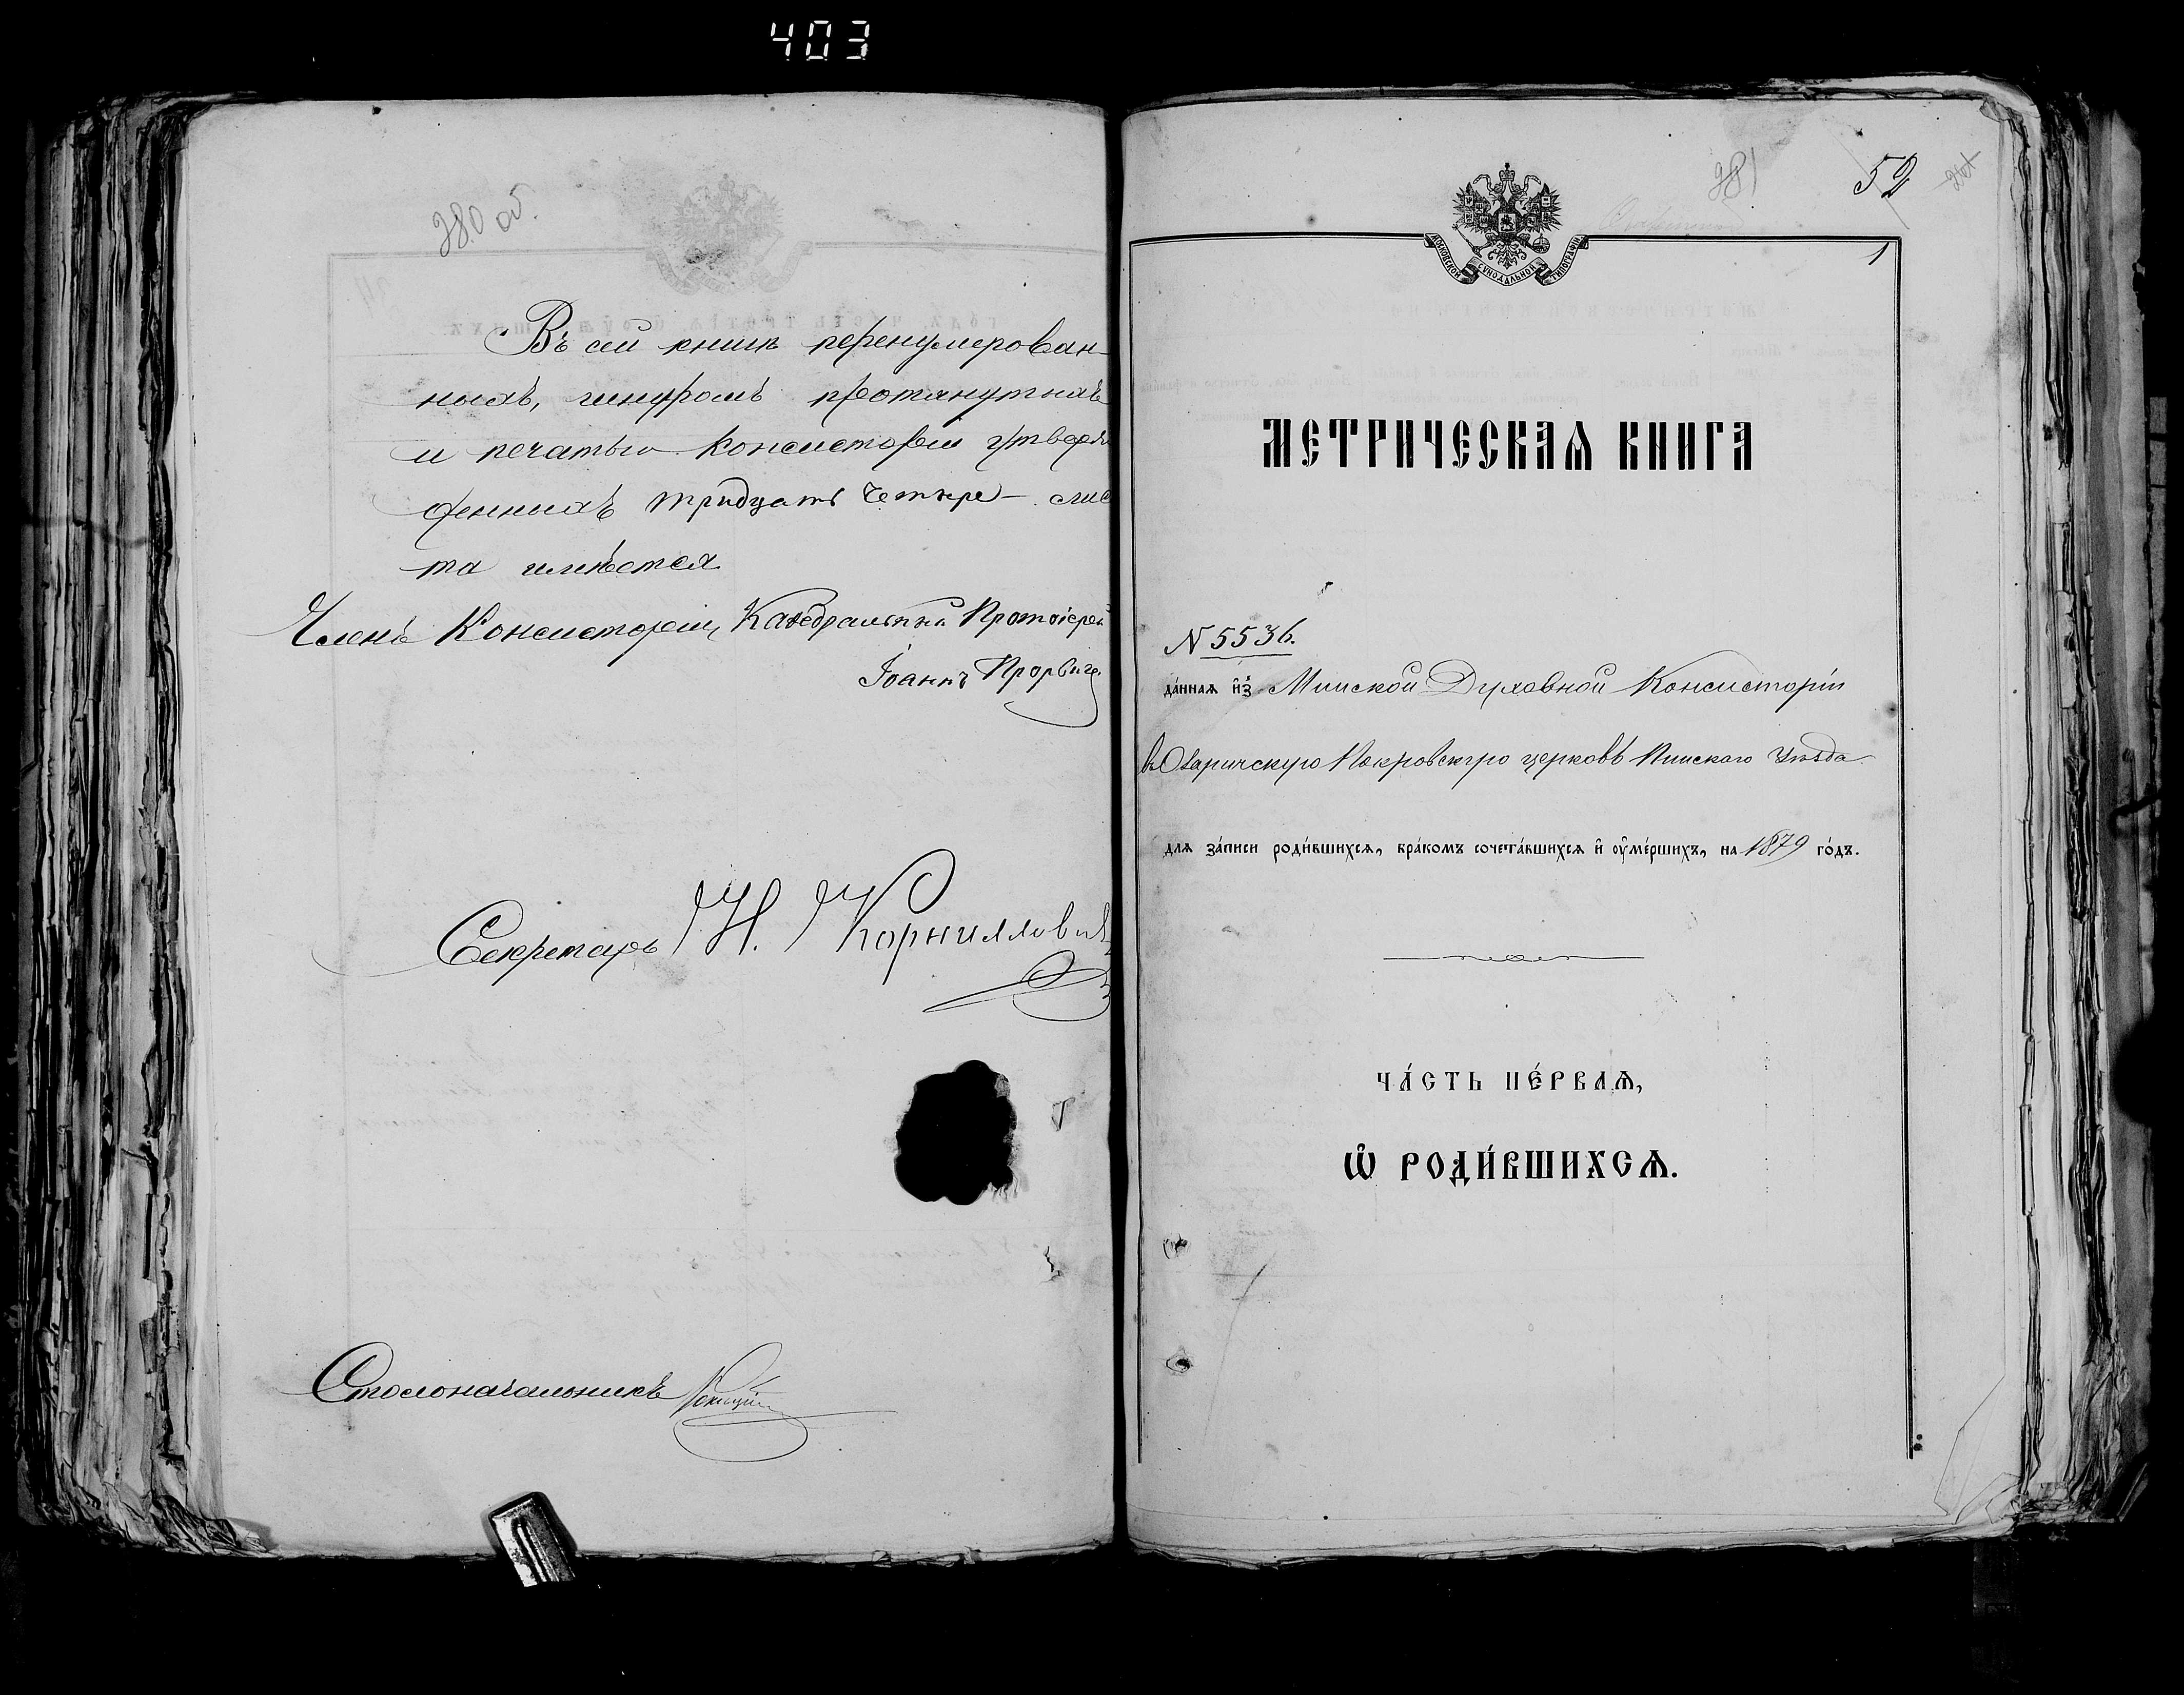 403
380 об.
Въ сей книгѣ перенумерован-
ныхъ, шнуромъ протянутыхъ
и печатью Консисторіи утверж
денныхъ тридцать четыре – лис
та имѣется
Членъ Консисторіи, Каѳедральный Протоіерей
Іоаннъ
Секретарь Н. Корниллович
Столоначальникъ
381
52
1
МОСКОВСКОЙ СѴНОДАЛЬНОЙ ТИПОГРАФІИ
МЕТРИЧЕСКАѦ КНИГА
N 5536.
да́ннаѧ и҆з̾ Минской Духовной Консисторіи
въ Опаричскую Покровскую церковь Пинскаго Уѣзда
длѧ за́писи роди́вшихсѧ, бра́комъ сочета́вшихсѧ и҆ ᲂу҆ме́ршихъ, на 1879 го́дъ.
ЧА́СТЬ ПЕ́РВАѦ,
Ѽ РОДИ́ВШИХСѦ.